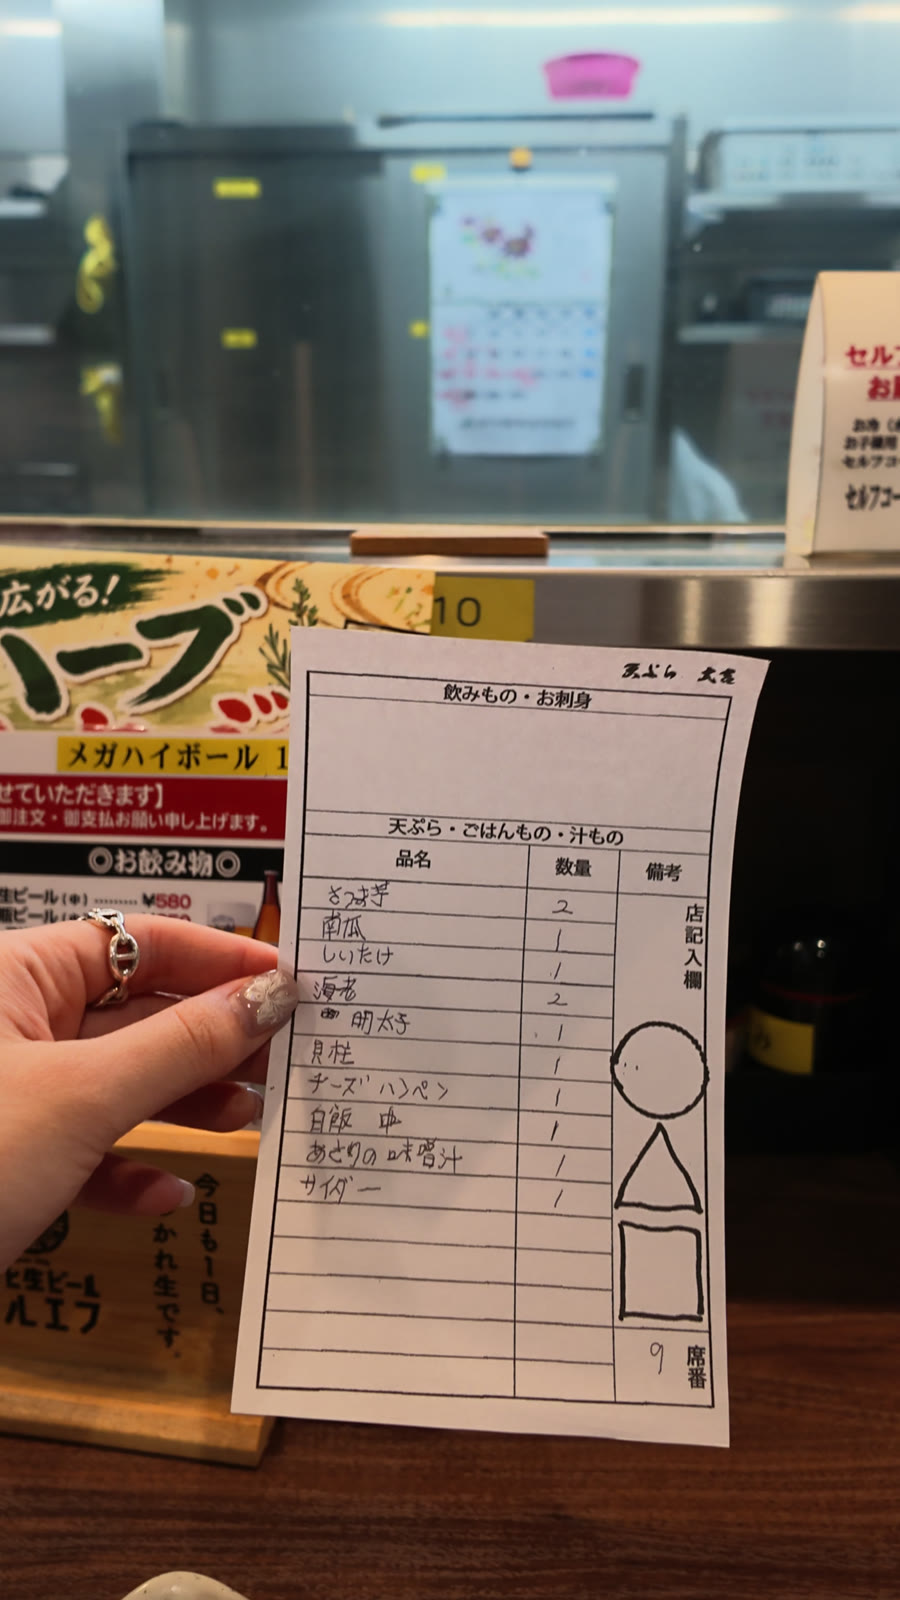 セルフ
お冷
お子様用
セルフコー
セルフコー
広がる!
ハーブ
10
メガハイボール 1
せていただきます】
御注文・御支払お願い申し上げます。
◎お飲み物◎
生ビール(中) ......... ¥580
瓶ビール
今日も1日、
かれ生です。
生ビール
ルエフ
天ぷら
飲みもの・お刺身
天ぷら・ごはんもの・汁もの
品名 数量 備考
さつま芋 2
南瓜 1
しいたけ 1
海老 2
明太子 1
貝柱 1
チーズハンペン 1
白飯 中 1
あさりの味噌汁 1
サイダー 1
店記入欄
9 席番